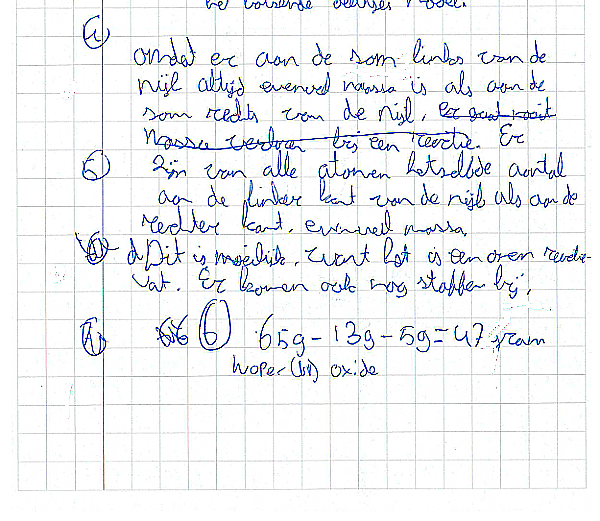 het volgende deeltjes model.
a
omdat er aan de som links van de
pijl altijd evenveel massa is als aan de
som rechts van de pijl. Er gaat nooit
massa verloren bij een reactie. Er
5) zijn van alle atomen hetzelfde aantal
aan de linker kant van de pijl als aan de
rechter kant. evenveel massa.
d Dit is moeilijk, want het is een oven
vat. Er komen ook nog stoffen bij.
6 65g - 13g - 5g = 47 gram
koper (II) oxide